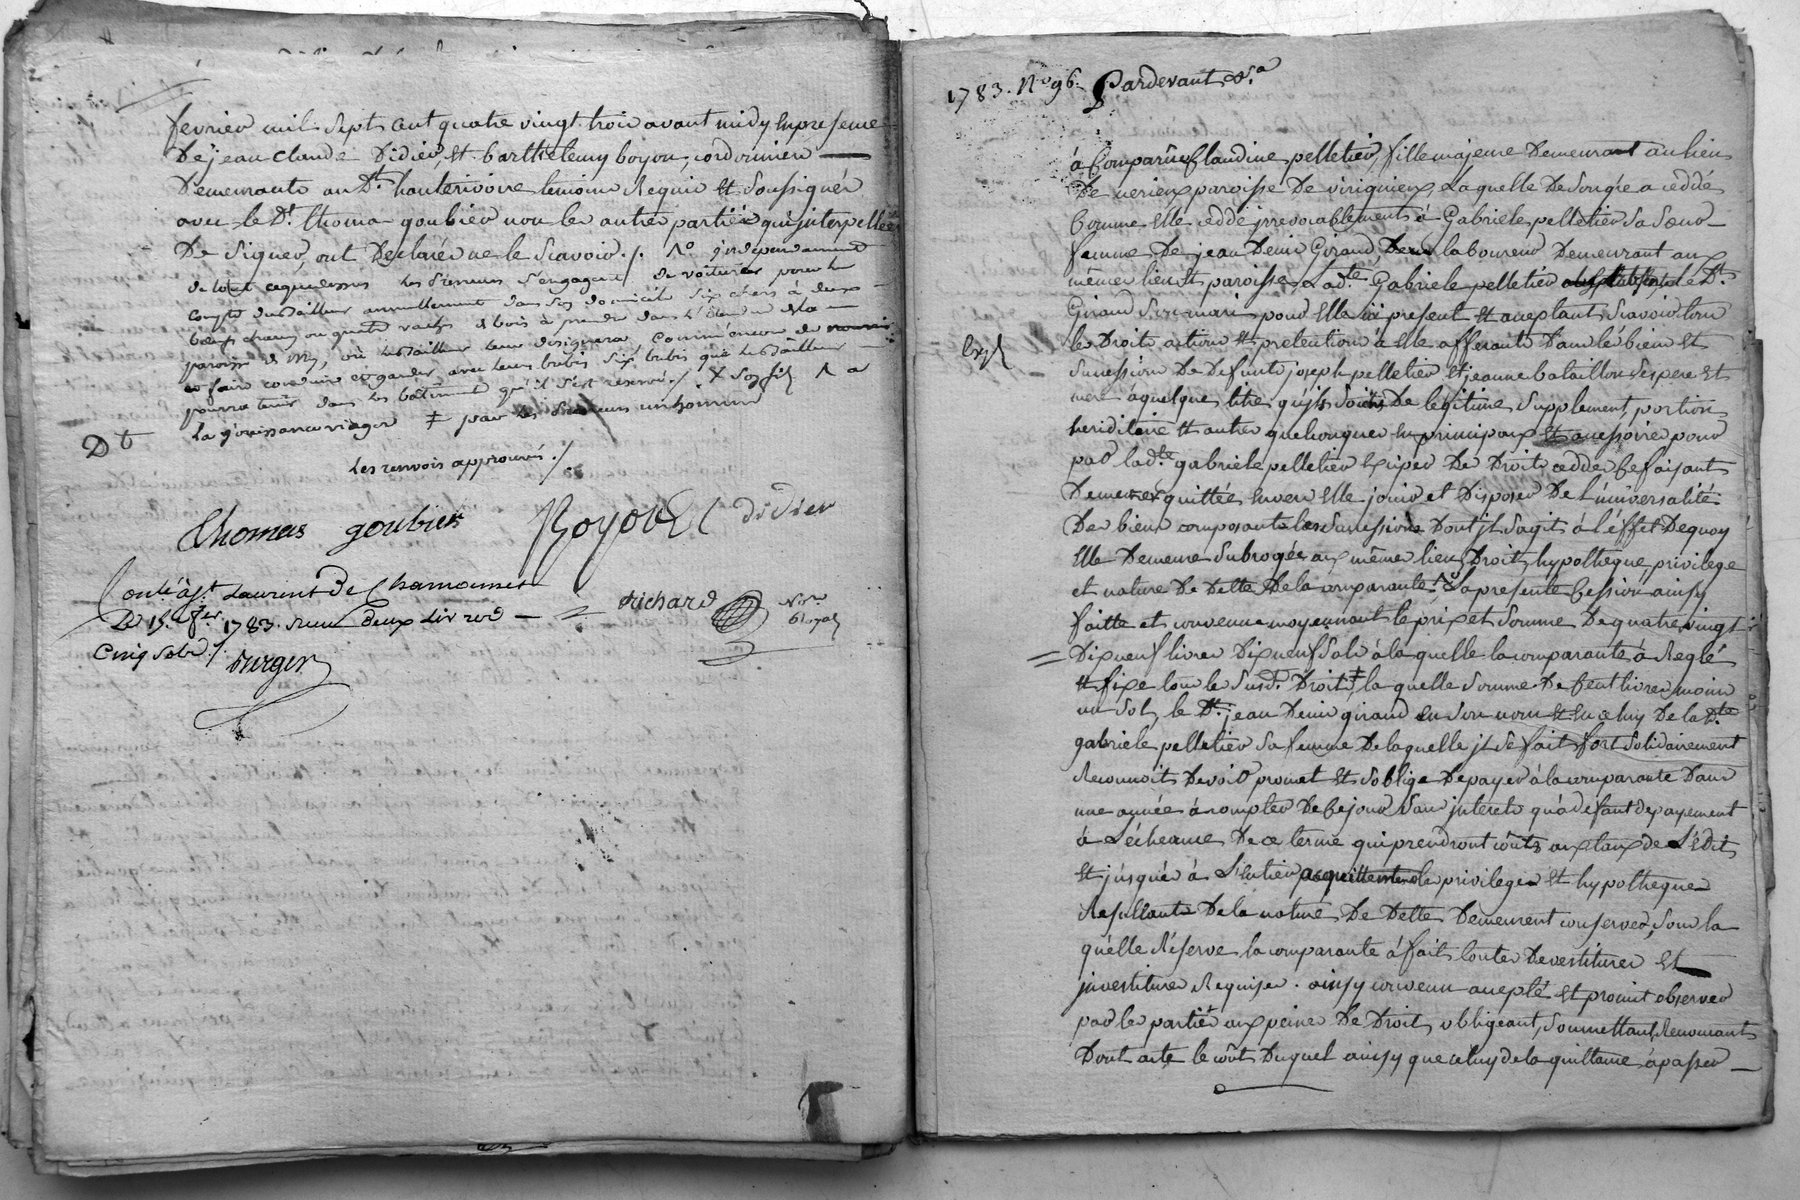 fevrier mil sept cent quatre vingt trois avant midy en presence
De jean claude Didier, et barthelemy boyon, cordonnier
Demeurants au Dt. hauterivoire temoins Requis et Soussignés
avec le Dt. thomas goubier non les autres parties qui interpellées
De signer, ont Declarées ne le Scavoir ./. No. independament
de tout ce que dessus les preneurs s'engagent de voiturer pour le
compte du Bailleur annuellement dans son domicile six chars à deux
bœufs chacun ou quatre vaches de bois à prendre dans l'étendue de la
paroisse de où le Bailleur leur designera, comm'encor de nourrir
et faire conduire et garder avec leurs brebis six brebis que le Bailleur
pourra tenir dans les bâtiments qu'il s'est reservés ./.
la jouissance viager ‡ par les preneurs un homme
Dt
les renvois approuvés ./.
thomas goubier Boyon Didier
Conlé à St. Laurent De Chamousset
Le 15. fer. 1783. Reçu Deux livres
Cinq Sols ./.
Richard Nore. Royal
Durger
1783. No 96. Pardevant &a.
à Comparüe Claudine pelletier, fille majeure Demeurant au lieu
De nerieux paroisse De virignieux, Laquelle De Son gré a ceddé
Comme Elle cedde irrevocablement à Gabriele pelletier Sa Sœur
femme De jean Denis Giraud, laboureur Demeurant aux
mêmes lieu et paroisse, Ladte. Gabriele pelletier le Dt.
Giraud Son mari pour elle ici present et acceptant Scavoir tous
les Droits actions et pretentions à elle afferants Dans les biens et
Successions De Defunts joseph pelletier et jeanne bataillon Ses pere et
mere à quelque titre qu'ils soient De legitime, Supplement, portion
heriditaire et autres quelconques en principaux et accessoires pour
par ladte. gabriele pelletier Exiper De Droits ceddés Ce faisant
Demeurer quittée envers elle jouir et Disposer De l'universalité
Des biens composants les Successions Dont il S'agit à l'effet De quoy
Elle Demeure Subrogée aux mêmes lieu, Droit, hypotheque, privilege
et nature De Dette De la comparante, La presente Cession ainsy
faitte et convenue moyennant le prix et Somme De quatre vingt
Dix neuf livres Dix neuf Sols à la quelle la comparante à Reglé
et fixé tous les Susd. Droits ‡, la quelle Somme De Cent livres moins
un Sol, le Dt. jean Denis giraud en Son nom et en celuy De la Dte
gabriele pelletier Sa femme De laquelle jl Se fait fort Solidairement
Reconnoit Devoir promet et S'oblige De payer à la comparante Dans
une année à compter De Ce jour Sans interets qu'à defaut de payement
à L'écheance De ce terme qui prendront cours aux taux de L'Edit
et jusques à L'Entier acquittement les privileges et hypotheques
Resultants De la nature De Dette Demeurent conservés, Sous la
quelle Réserve la comparante à fait toutes Devestitures et
investitures Requises. ainsy convenu accepté et promis observer
par les parties aux peines De Droit, obligeant, Soumettant, Renonçant
Dont acte le coût Duquel ainsy que celuy de la quittance à passer